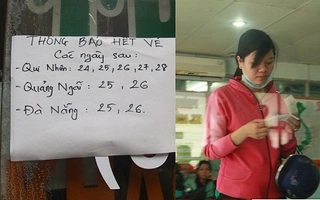 THÔNG BÁO HẾT VÉ
Các ngày sau:
- Qui Nhơn: 24, 25, 26, 27, 28
- Quảng Ngãi: 25, 26
- Đà Nẵng: 25, 26.